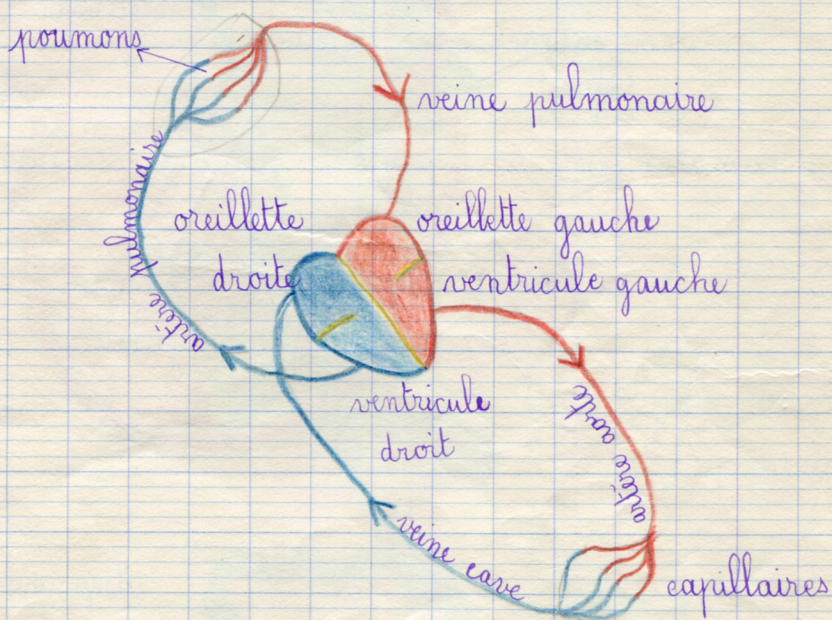 poumons
veine pulmonaire
artère pulmonaire
oreillette
droite
oreillette gauche
ventricule gauche
ventricule
droit
artère aorte
veine cave
capillaires